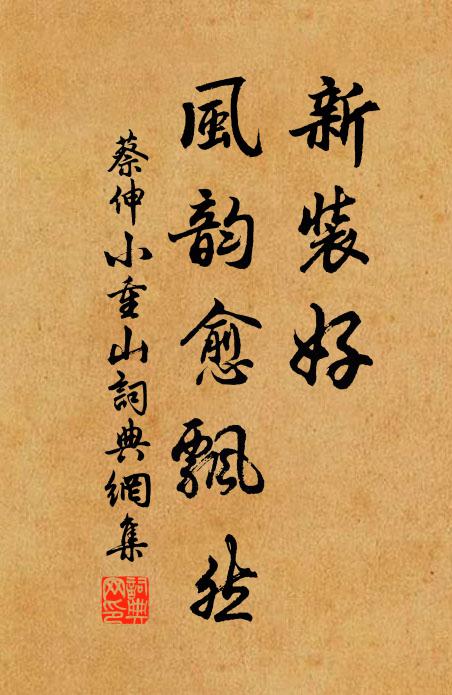 新裝好
風韵愈飄然
蔡伸小重山詞典網集
詞典网印